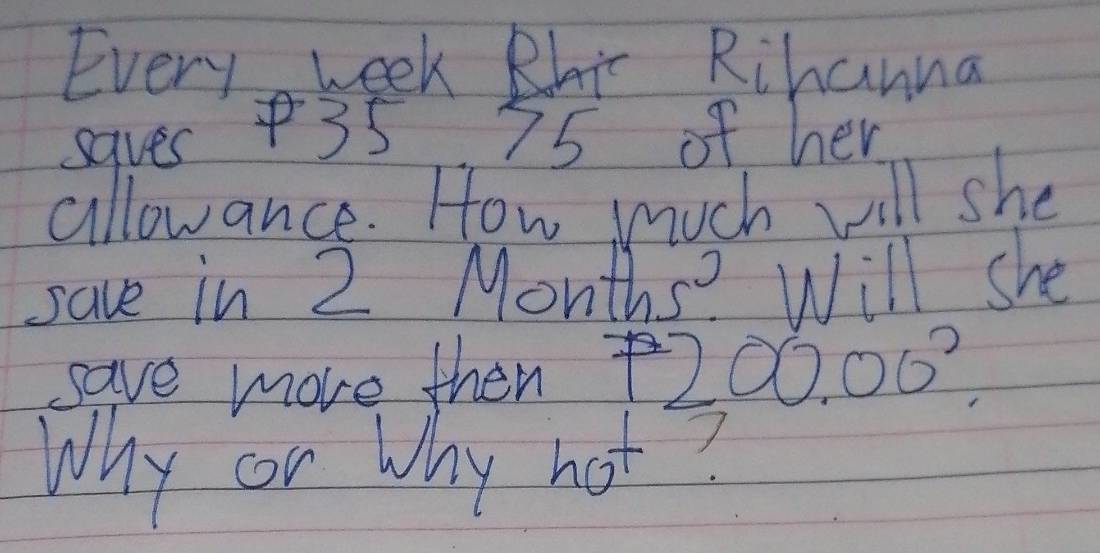 Every week Rhir Rihanna
saves ₱35.75 of her
allowance. How much will she
save in 2 Months? Will she
save more then ₱200.00?
Why or Why not?